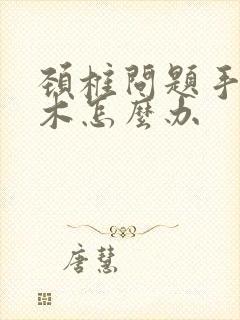 頸椎問題手
木怎麼办
唐慧